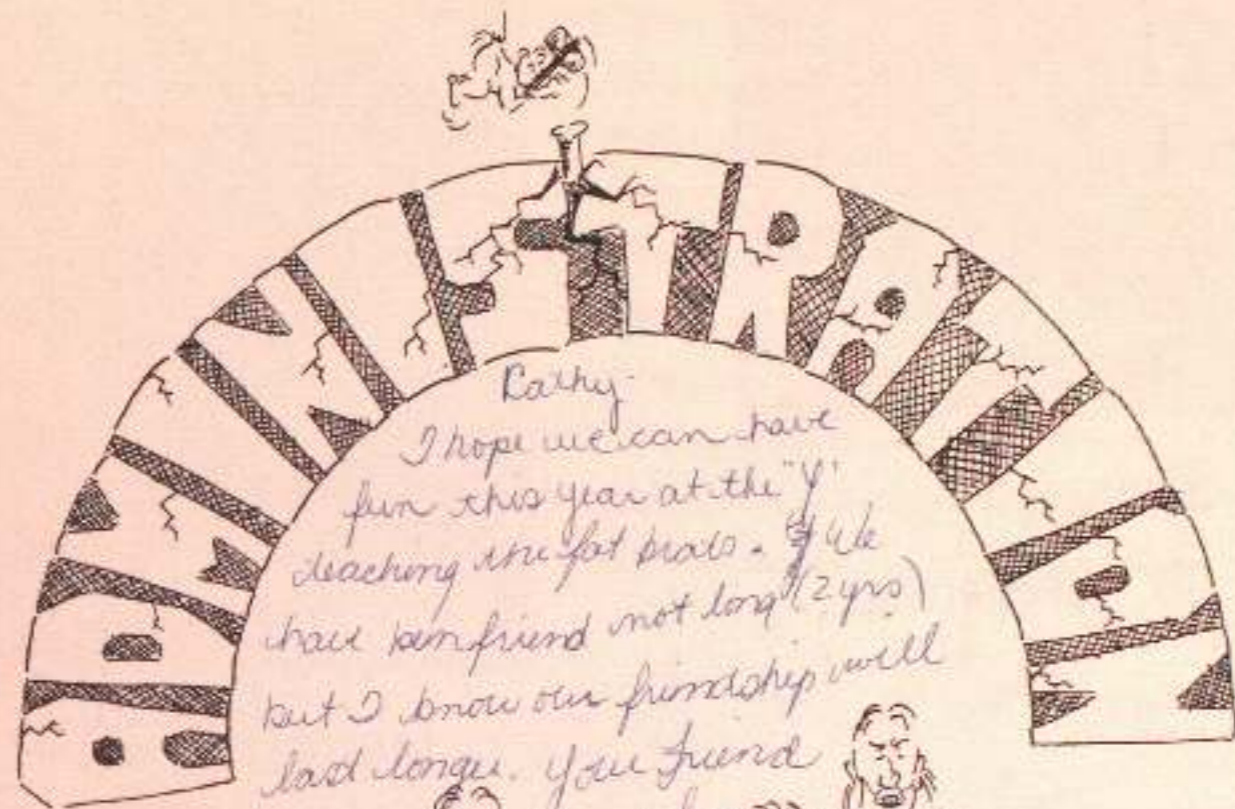 ADMINISTRATION
Kathy
I hope we can have
fun this year at the "Y"
teaching the fat brats. We
have ben friend not long (2 yrs)
but I know our friendship will
last longer. Your friend